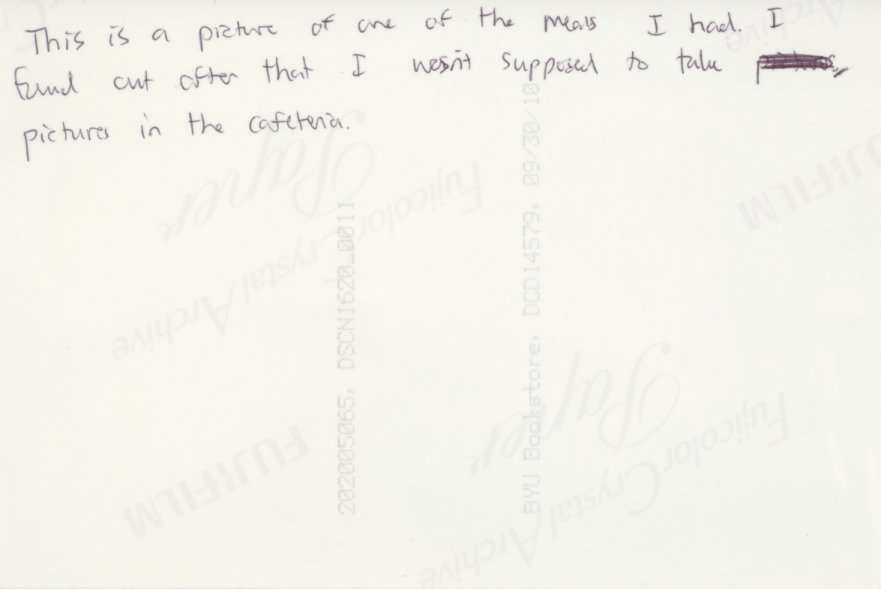 This is a picture of one of the meals I had. I
fund out after that I wasn't supposed to take
pictures in the cafeteria.
202005065, DSCN1620_0011
BYU Bookstore, DCD14579, 09/30/10
Fujicolor Crystal Archive
Paper
FUJIFILM
Fujicolor Crystal Archive
Paper
FUJIFILM
Archive